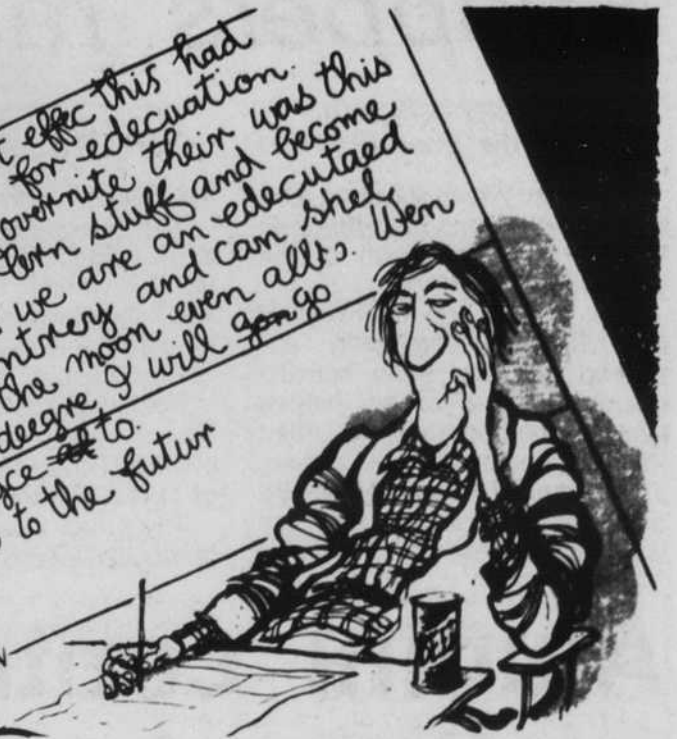 effec this had
for edecuation.
overnite their was this
lern stuff and become
we are an edecutaed
and can shel
the moon even allso. Wen
deegre I will gon go
to.
to the futur
BEER